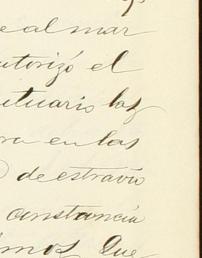 e al mar
utorizó el
ctuario las
ra en las
de estravio
constancia
imos que